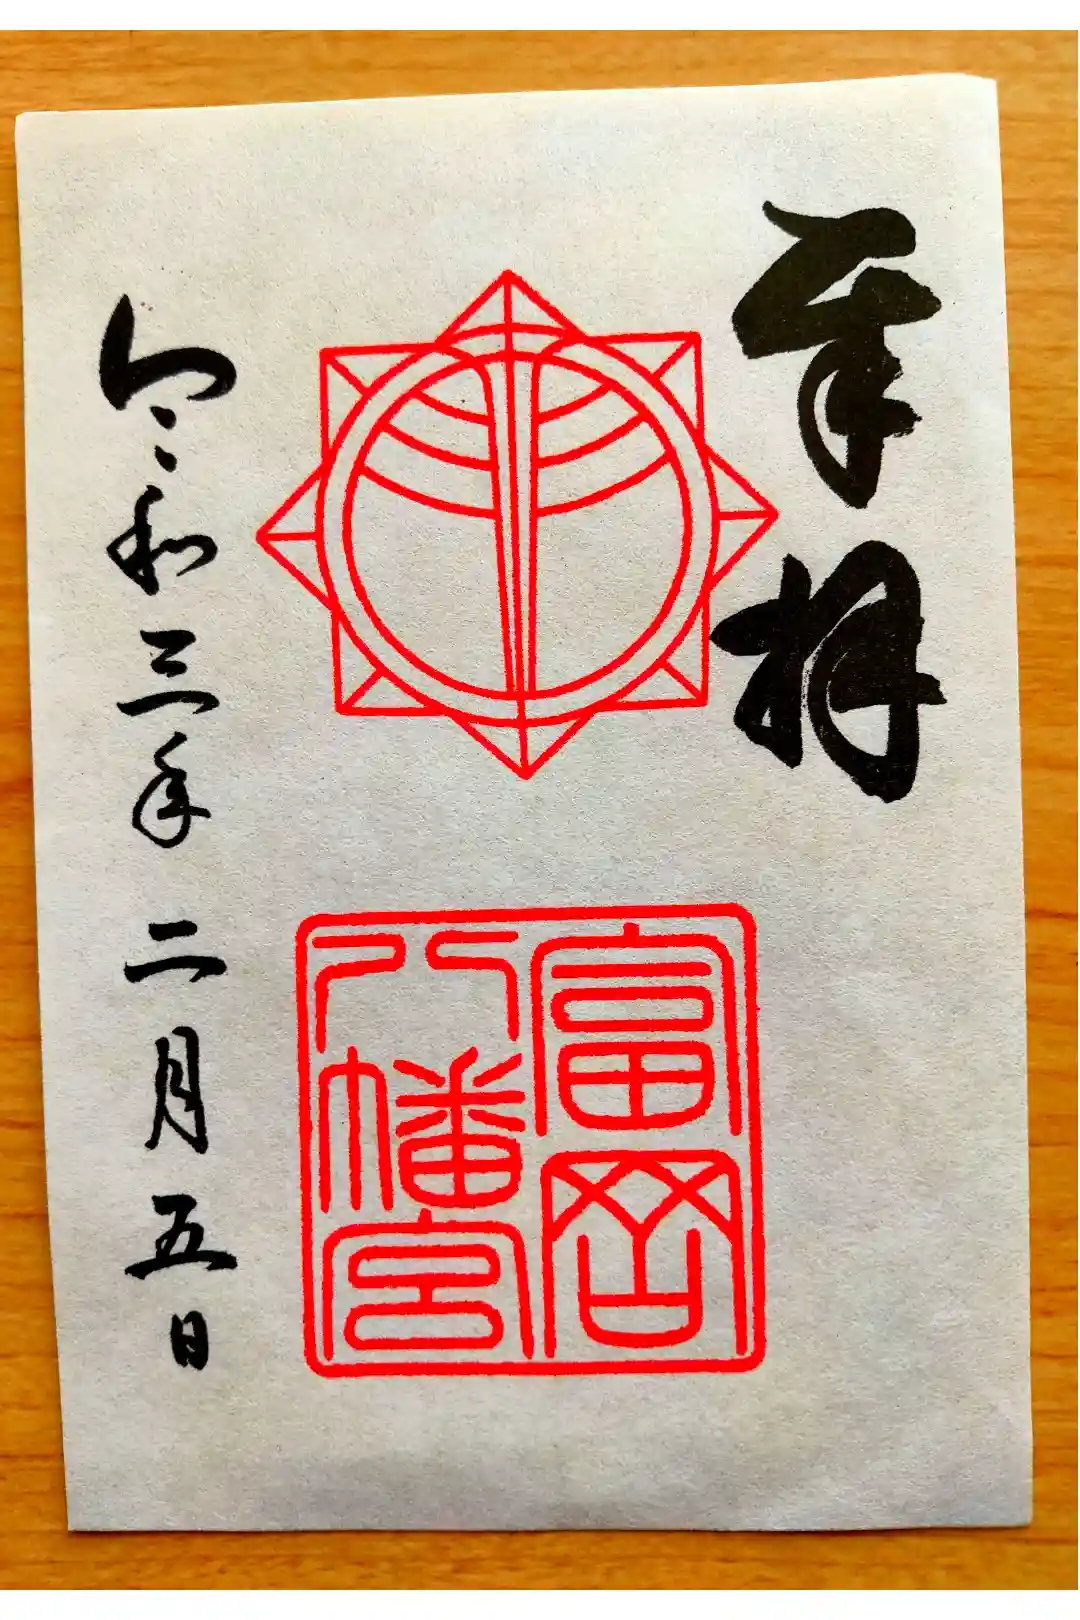 奉拝
富岡
八幡宮
令和三年二月五日